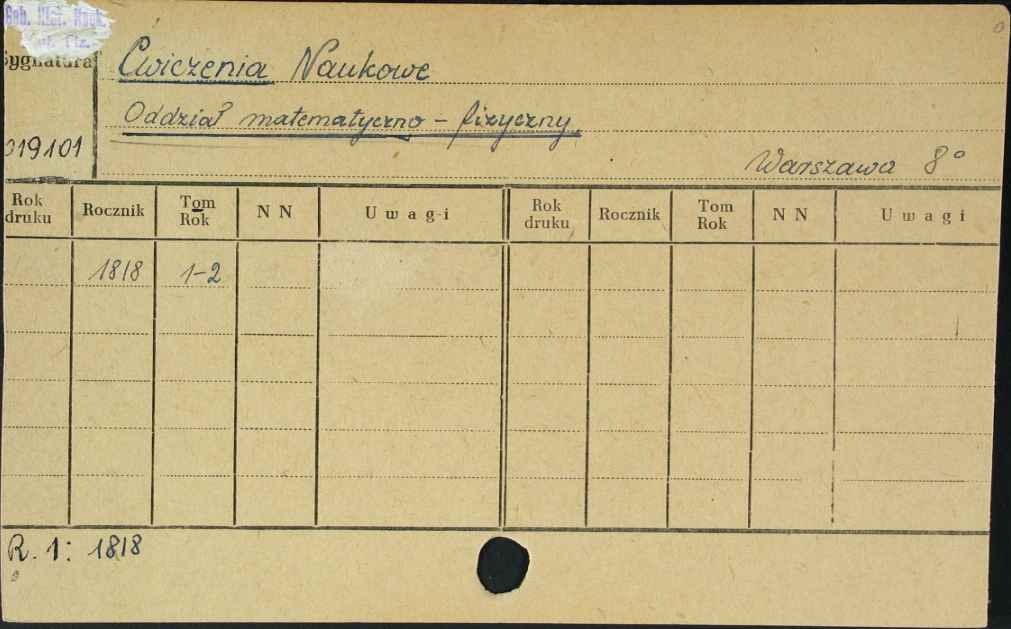 Gab. Hist. Nauk.
Sygnatura
Ćwiczenia Naukowe
Oddział matematyczno - fizyczny
019101
Warszawa 8°
Rok druku Rocznik Tom Rok NN Uwagi Rok druku Rocznik Tom Rok NN Uwagi
1818 1-2
R. 1: 1818